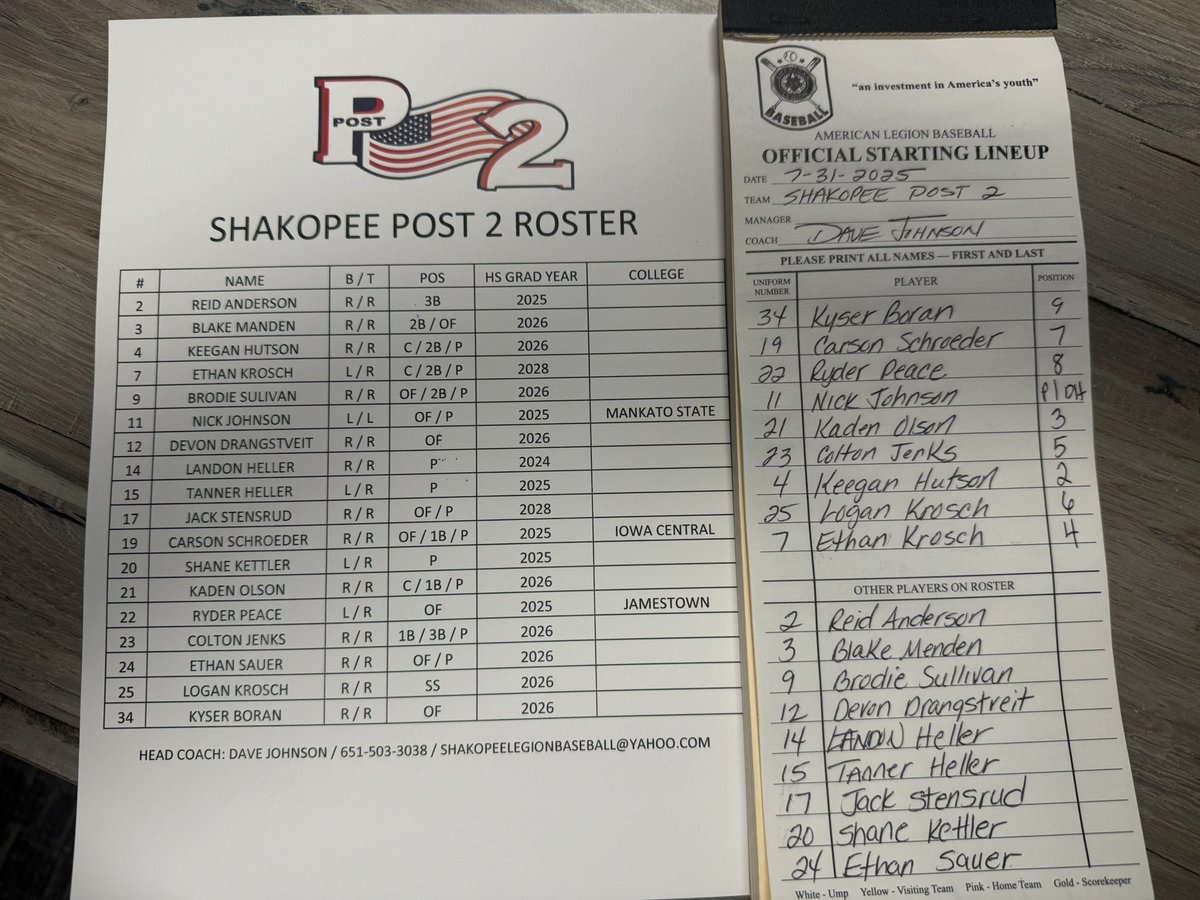 P POST 2
SHAKOPEE POST 2 ROSTER
# NAME B / T POS HS GRAD YEAR COLLEGE
2 REID ANDERSON R / R 3B 2025
3 BLAKE MANDEN R / R 2B / OF 2026
4 KEEGAN HUTSON R / R C / 2B / P 2026
7 ETHAN KROSCH L / R C / 2B / P 2028
9 BRODIE SULIVAN R / R OF / 2B / P 2026
11 NICK JOHNSON L / L OF / P 2025 MANKATO STATE
12 DEVON DRANGSTVEIT R / R OF 2026
14 LANDON HELLER R / R P 2024
15 TANNER HELLER L / R P 2025
17 JACK STENSRUD R / R OF / P 2028
19 CARSON SCHROEDER R / R OF / 1B / P 2025 IOWA CENTRAL
20 SHANE KETTLER L / R P 2025
21 KADEN OLSON R / R C / 1B / P 2026
22 RYDER PEACE L / R OF 2025 JAMESTOWN
23 COLTON JENKS R / R 1B / 3B / P 2026
24 ETHAN SAUER R / R OF / P 2026
25 LOGAN KROSCH R / R SS 2026
34 KYSER BORAN R / R OF 2026
HEAD COACH: DAVE JOHNSON / 651-503-3038 / SHAKOPEELEGIONBASEBALL@YAHOO.COM
BASEBALL
"an investment in America's youth"
AMERICAN LEGION BASEBALL
OFFICIAL STARTING LINEUP
DATE 7-31-2025
TEAM SHAKOPEE POST 2
MANAGER
COACH DAVE JOHNSON
PLEASE PRINT ALL NAMES — FIRST AND LAST
UNIFORM NUMBER PLAYER POSITION
34 Kyser Boran 9
19 Carson Schroeder 7
22 Ryder Peace 8
11 Nick Johnson P/DH
21 Kaden Olson 3
23 Colton Jenks 5
4 Keegan Hutson 2
25 Logan Krosch 6
7 Ethan Krosch 4
OTHER PLAYERS ON ROSTER
2 Reid Anderson
3 Blake Menden
9 Brodie Sullivan
12 Devon Drangstveit
14 LANDON Heller
15 Tanner Heller
17 Jack Stensrud
20 Shane Kettler
24 Ethan Sauer
White - Ump Yellow - Visiting Team Pink - Home Team Gold - Scorekeeper